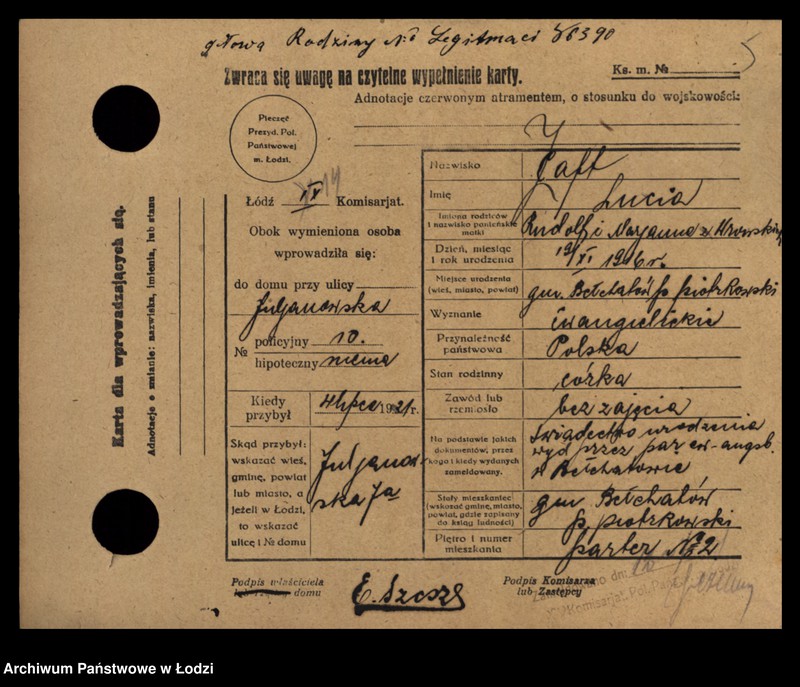 Rodziny No Legitmaci 78390
Zwraca się uwagę na czytelne wypełnienie karty.
Ks. m. №
Adnotacje czerwonym atramentem, o stosunku do wojskowości:
Pieczęć
Prezyd. Pol.
Państwowej
m. Łodzi.
Karta dla wprowadzających się.
Adnotacje o zmianie: nazwiska, imienia, lub stanu
Łódź XIV Komisarjat.
Obok wymieniona osoba
wprowadziła się:
do domu przy ulicy
Juljanowska
№ policyjny 10.
hipoteczny niema
Kiedy przybył 4 lipca 1921 r.
Skąd przybył:
wskazać wieś,
gminę, powiat
lub miasto, a
jeżeli w Łodzi,
to wskazać
ulicę i № domu
Juljanowska 7a
Nazwisko Jaft
Imię Lucia
Imiona rodziców i nazwisko panieńskie matki Rudolf i Maryanna z
Dzień, miesiąc i rok urodzenia 19/XI 1906 r.
Miejsce urodzenia (wieś, miasto, powiat) gm. Bełchatów p. piotrkowski
Wyznanie ewangielickie
Przynależność państwowa Polska
Stan rodzinny córka
Zawód lub rzemiosło bez zajęcia
Na podstawie jakich dokumentów, przez kogo i kiedy wydanych zameldowany. Świadectwo urodzenia
wyd przez par ew-augsb.
w Bełchatowie
Stały mieszkaniec (wskazać gminę, miasto, powiat, gdzie zapisany do ksiąg ludności) gm. Bełchatów
p. piotrkowski
Piętro i numer mieszkania parter № 2
Podpis właściciela
lub rządcy domu
Podpis Komisarza
lub Zastępcy
Komisarjat. Pol. Pań
Archiwum Państwowe w Łodzi